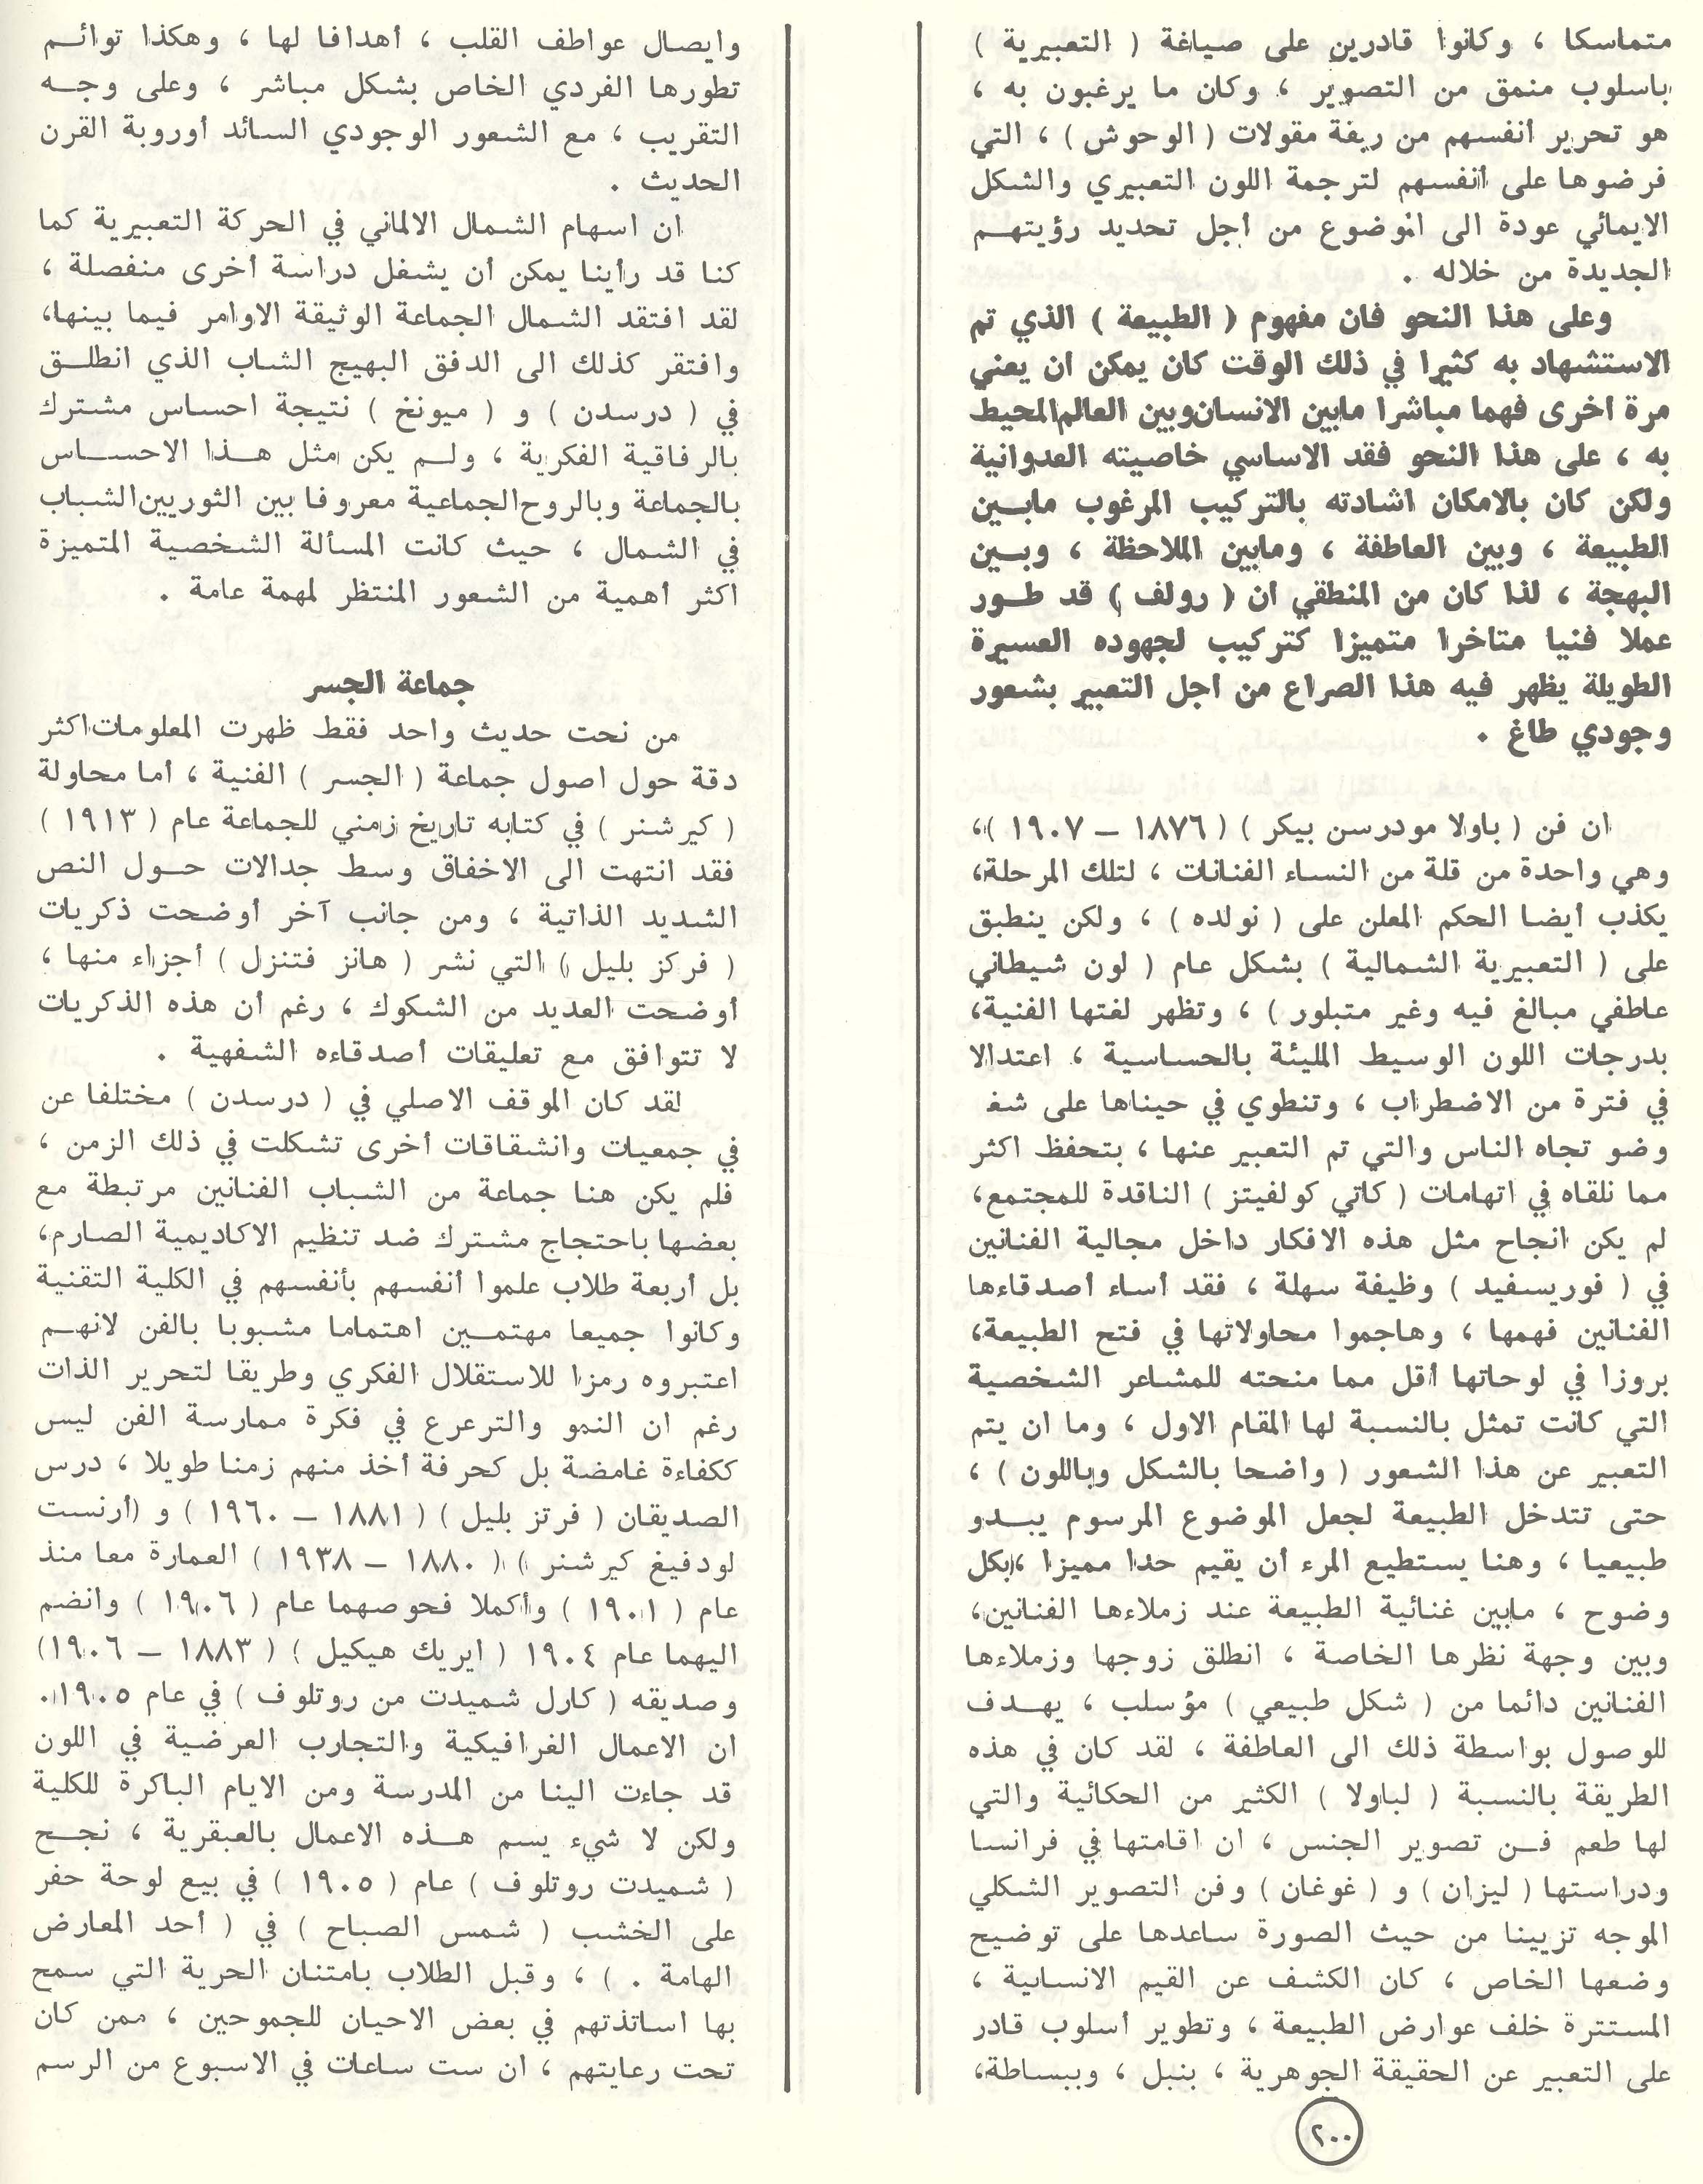 متماسكا ، وكانوا قادرين على صياغة ( التعبيرية )
باسلوب منمق من التصوير ، وكان ما يرغبون به ،
هو تحرير أنفسهم من ربقة مقولات ( الوحوش ) ، التي
فرضوها على أنفسهم لترجمة اللون التعبيري والشكل
الايمائي عودة الى الموضوع من أجل تحديد رؤيتهم
الجديدة من خلاله .
وعلى هذا النحو فان مفهوم ( الطبيعة ) الذي تم
الاستشهاد به كثيرا في ذلك الوقت كان يمكن ان يعني
مرة اخرى فهما مباشرا مابين الانسان وبين العالم المحيط
به ، على هذا النحو فقد الاساسي خاصيته العدوانية
ولكن كان بالامكان اشادته بالتركيب المرغوب مابين
الطبيعة ، وبين العاطفة ، ومابين الملاحظة ، وبين
البهجة ، لذا كان من المنطقي ان ( رولف ) قد طور
عملا فنيا متاخرا متميزا كتركيب لجهوده العسيرة
الطويلة يظهر فيه هذا الصراع من اجل التعبير بشعور
وجودي طاغ .
ان فن ( باولا مودرسن بيكر ) ( ١٨٧٦ - ١٩٠٧ )،
وهي واحدة من قلة من النساء الفنانات ، لتلك المرحلة،
يكذب أيضا الحكم المعلن على ( نولده ) ، ولكن ينطبق
على ( التعبيرية الشمالية ) بشكل عام ( لون شيطاني
عاطفي مبالغ فيه وغير متبلور ) ، وتظهر لغتها الفنية،
بدرجات اللون الوسيط المليئة بالحساسية ، اعتدالا
في فترة من الاضطراب ، وتنطوي في حيناها على شغ
وضو تجاه الناس والتي تم التعبير عنها ، بتحفظ اكثر
مما نلقاه في اتهامات ( كاتي كولفيتز ) الناقدة للمجتمع،
لم يكن انجاح مثل هذه الافكار داخل مجالية الفنانين
في ( فوريسفيد ) وظيفة سهلة ، فقد أساء أصدقاءها
الفنانين فهمها ، وهاجموا محاولاتها في فتح الطبيعة،
بروزا في لوحاتها أقل مما منحته للمشاعر الشخصية
التي كانت تمثل بالنسبة لها المقام الاول ، وما ان يتم
التعبير عن هذا الشعور ( واضحا بالشكل وباللون ) ،
حتى تتدخل الطبيعة لجعل الموضوع المرسوم يبدو
طبيعيا ، وهنا يستطيع المرء أن يقيم حدا مميزا ،بكل
وضوح ، مابين غنائية الطبيعة عند زملاءها الفنانين،
وبين وجهة نظرها الخاصة ، انطلق زوجها وزملاءها
الفنانين دائما من ( شكل طبيعي ) مؤسلب ، يهدف
للوصول بواسطة ذلك الى العاطفة ، لقد كان في هذه
الطريقة بالنسبة ( لباولا ) الكثير من الحكائية والتي
لها طعم فن تصوير الجنس ، ان اقامتها في فرانسا
ودراستها ( ليزان ) و ( غوغان ) وفن التصوير الشكلي
الموجه تزيينا من حيث الصورة ساعدها على توضيح
وضعها الخاص ، كان الكشف عن القيم الانسانية ،
المستترة خلف عوارض الطبيعة ، وتطوير أسلوب قادر
على التعبير عن الحقيقة الجوهرية ، بنبل ، وببساطة،
وايصال عواطف القلب ، أهدافا لها ، وهكذا توائم
تطورها الفردي الخاص بشكل مباشر ، وعلى وجه
التقريب ، مع الشعور الوجودي السائد أوروبة القرن
الحديث .
ان اسهام الشمال الالماني في الحركة التعبيرية كما
كنا قد رأينا يمكن أن يشغل دراسة أخرى منفصلة ،
لقد افتقد الشمال الجماعة الوثيقة الاوامر فيما بينها،
وافتقر كذلك الى الدفق البهيج الشاب الذي انطلق
في ( درسدن ) و ( ميونخ ) نتيجة احساس مشترك
بالرفاقية الفكرية ، ولم يكن مثل هذا الاحساس
بالجماعة وبالروح الجماعية معروفا بين الثوريين الشباب
في الشمال ، حيث كانت المسألة الشخصية المتميزة
اكثر أهمية من الشعور المنتظر لمهمة عامة .
جماعة الجسر
من نحت حديث واحد فقط ظهرت المعلومات اكثر
دقة حول اصول جماعة ( الجسر ) الفنية ، أما محاولة
( كيرشنر ) في كتابه تاريخ زمني للجماعة عام ( ١٩١٣ )
فقد انتهت الى الاخفاق وسط جدالات حول النص
الشديد الذاتية ، ومن جانب آخر أوضحت ذكريات
( فركز بليل ) التي نشر ( هانز فتنزل ) أجزاء منها ،
أوضحت العديد من الشكوك ، رغم أن هذه الذكريات
لا تتوافق مع تعليقات أصدقاءه الشفهية .
لقد كان الموقف الاصلي في ( درسدن ) مختلفا عن
في جمعيات وانشقاقات أخرى تشكلت في ذلك الزمن ،
فلم يكن هنا جماعة من الشباب الفنانين مرتبطة مع
بعضها باحتجاج مشترك ضد تنظيم الاكاديمية الصارم،
بل أربعة طلاب علموا أنفسهم بأنفسهم في الكلية التقنية
وكانوا جميعا مهتمين اهتماما مشبوبا بالفن لانهم
اعتبروه رمزا للاستقلال الفكري وطريقا لتحرير الذات
رغم ان النمو والترعرع في فكرة ممارسة الفن ليس
ككفاءة غامضة بل كحرفة أخذ منهم زمنا طويلا ، درس
الصديقان ( فرتز بليل ) ( ١٨٨١ - ١٩٦٠ ) و (أرنست
لودفيغ كيرشنر ) ( ١٨٨٠ - ١٩٣٨ ) العمارة معا منذ
عام ( ١٩٠١ ) وأكملا فحوصهما عام ( ١٩٠٦ ) وانضم
اليهما عام ١٩٠٤ ( ايريك هيكيل ) ( ١٨٨٣ - ١٩٠٦)
وصديقه ( كارل شميدت من روتلوف ) في عام ١٩٠٥.
ان الاعمال الغرافيكية والتجارب العرضية في اللون
قد جاءت الينا من المدرسة ومن الايام الباكرة للكلية
ولكن لا شيء يسم هذه الاعمال بالعبقرية ، نجح
( شميدت روتلوف ) عام ( ١٩٠٥ ) في بيع لوحة حفر
على الخشب ( شمس الصباح ) في ( أحد المعارض
الهامة . ) ، وقبل الطلاب بامتنان الحرية التي سمح
بها اساتذتهم في بعض الاحيان للجموحين ، ممن كان
تحت رعايتهم ، ان ست ساعات في الاسبوع من الرسم
٢٠٠